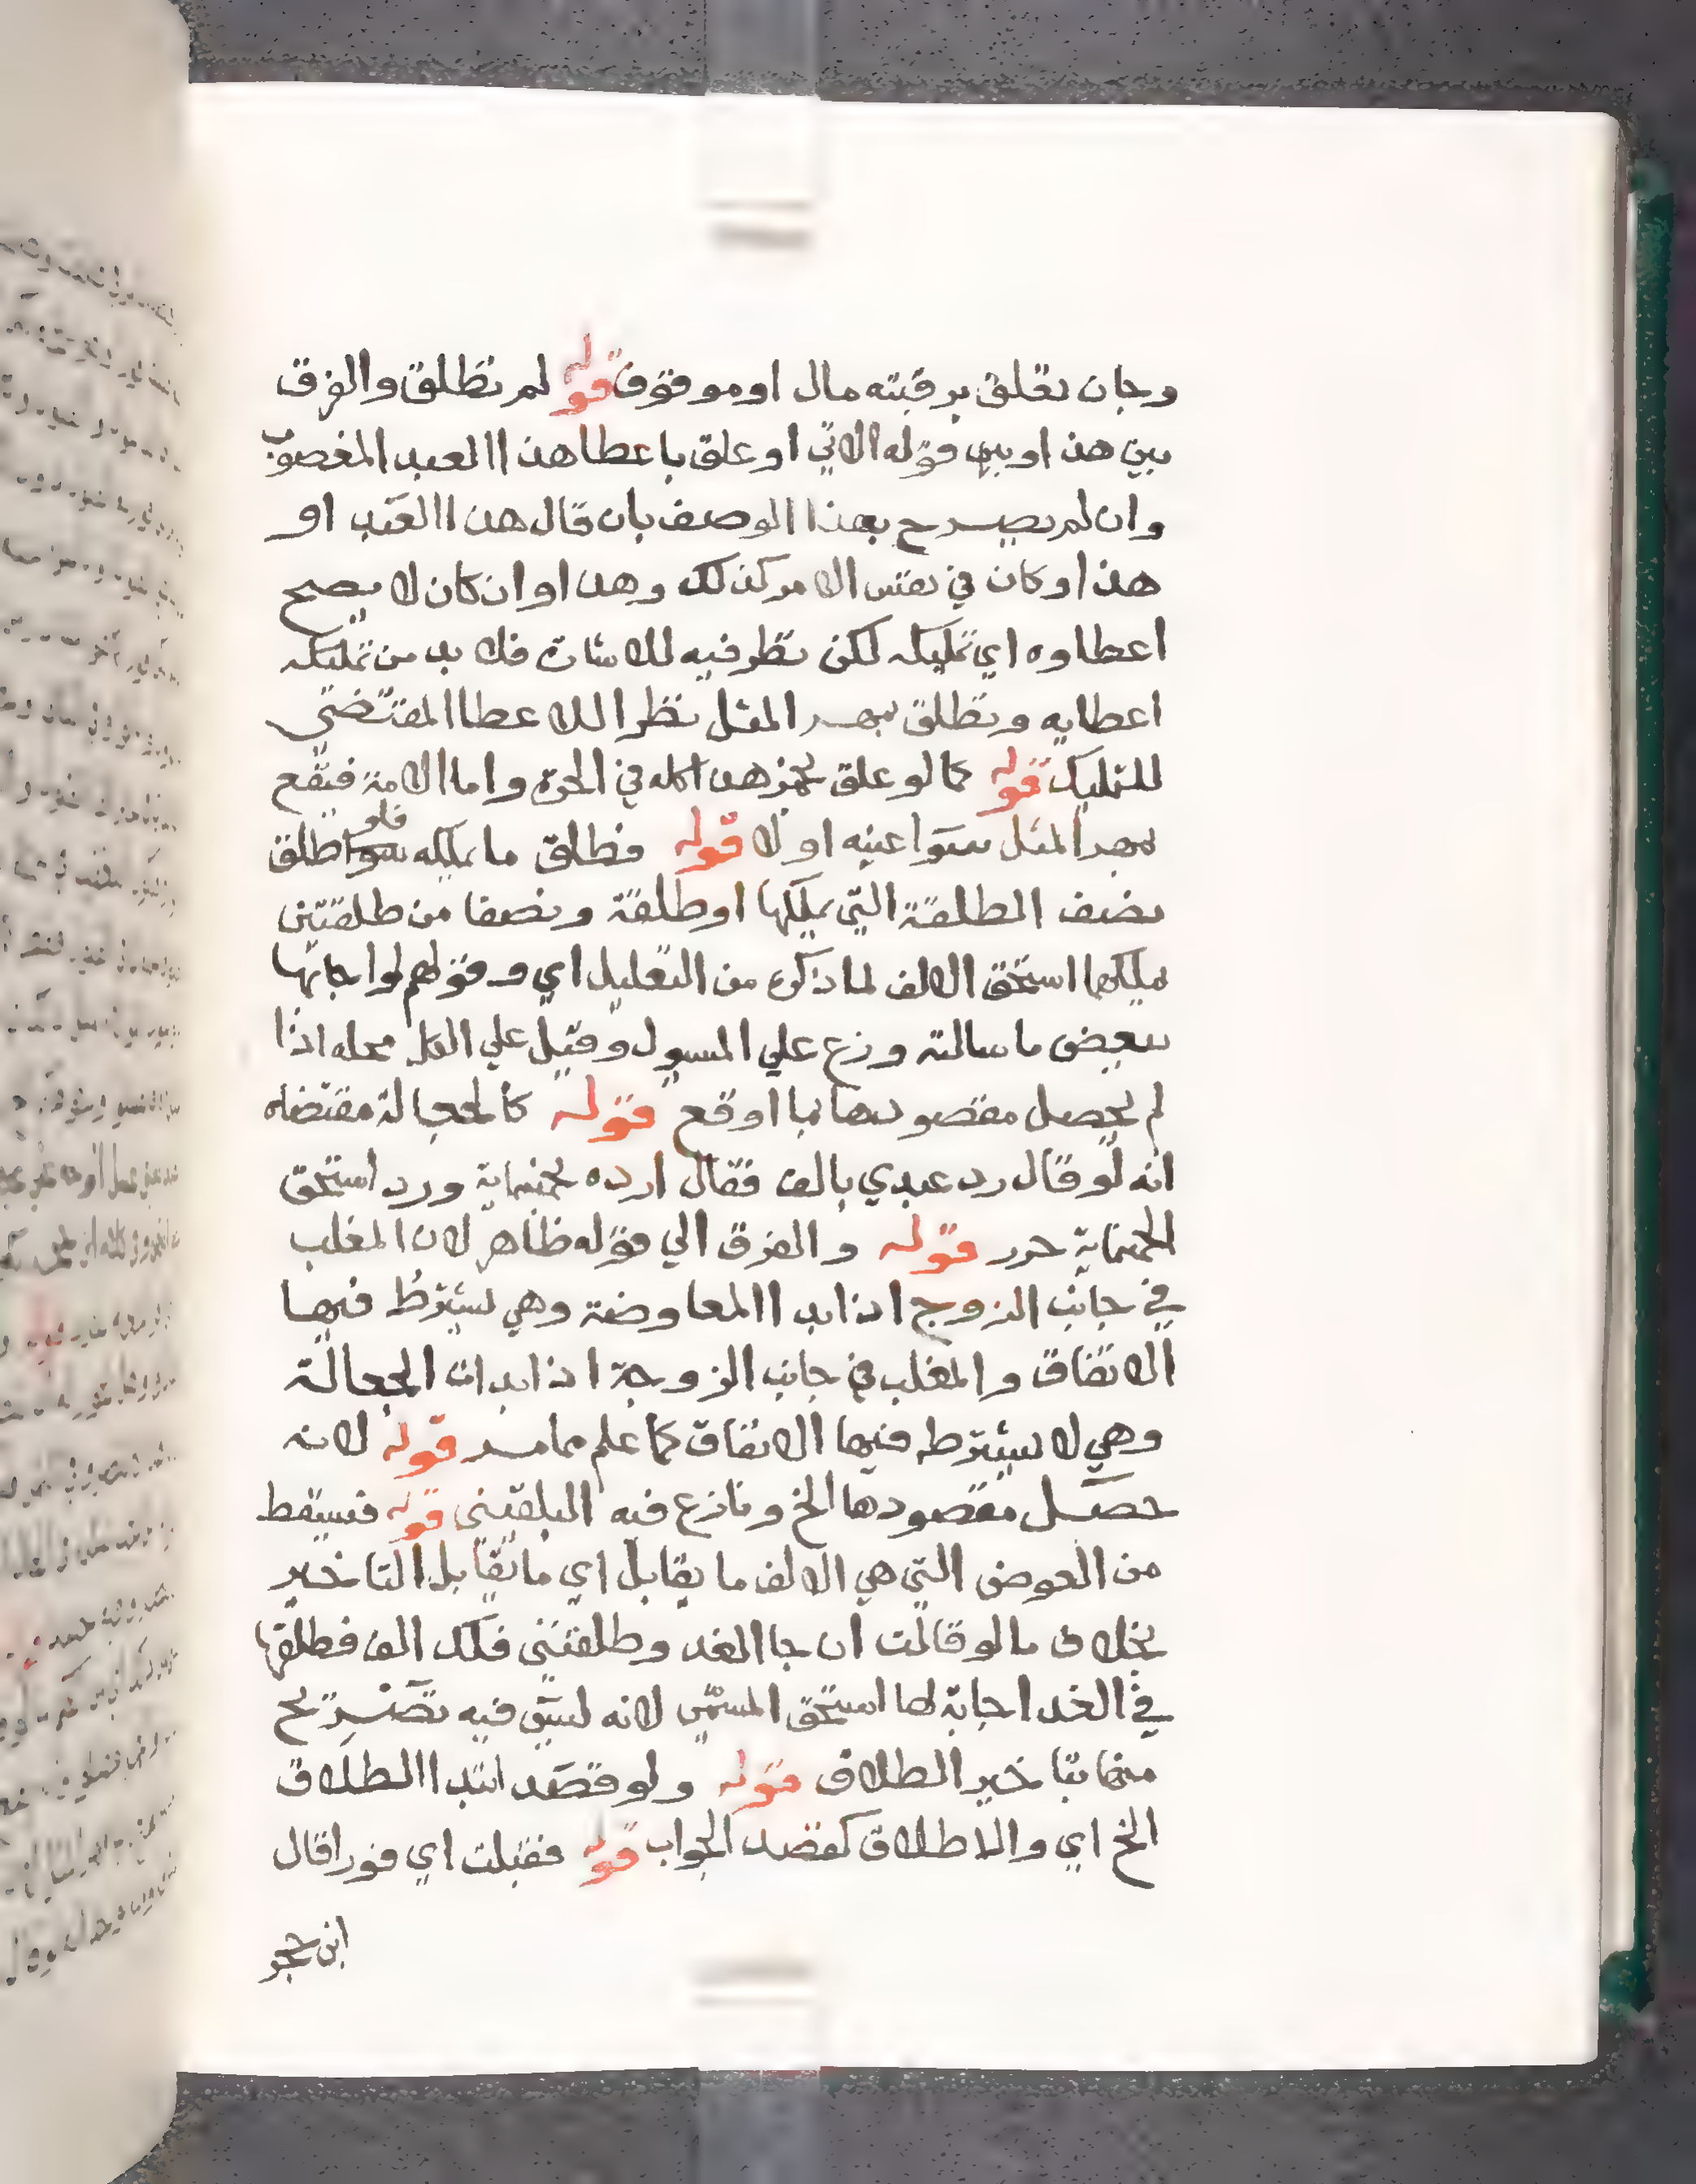 وجان تعلق برقبته مال او موقوف قوله لم تطلق والفرق
بين هذا وبين قوله الاتي او علق باعطا هذا العبد المغصوب
وان لم يصرح بهذا الوصف بان قال هذا العبد او
هذا وكان في نفس الامر كذلك وهذا وان كان لا يصح
اعطاوه اي تمليكه لكن نظر فيه للاشارة فلا بد من تمليكه
اعطايه وتطلق بمهر المثل نظرا للاعطا المقتضي
للتمليك قوله كما لو علق بخمر هذا كله في الحرة واما الامة فيقع
بمهر المثل سوا عينه او لا قوله فطلق ما يملكه فلو طلق
نصف الطلقة التي يملكها او طلقة ونصفا من طلقتين
يملكهما استحق الالف لما ذكره من التعليل اي وقولهم لو اجابها
ببعض ما سالته وزع علي المسول وقيل علي الكل محله اذا
لم يحصل مقصودها بما اوقع قوله كالجعالة مقتضاه
انه لو قال رد عبدي بالف فقال ارده بخمسماية ورد استحق
الخمسماية حرر قوله والفرق الي قوله ظاهر لان المغلب
في جانب الزوج اذا ابدا المعاوضة وهي يشترط فيها
الاتفاق والمغلب في جانب الزوجة اذا ابدات الجعالة
وهي لا يشترط فيها الاتفاق كما علم مما مر قوله لانه
حصل مقصودها الخ ونازع فيه البلقيني قوله فسقط
من العوض التي هي الالف ما يقابل اي ما يقابل التاخير
بخلاف ما لو قالت ان جا الغد وطلقتني فلك الف فطلقها
في الغد اجابة لها استحق المسمي لانه ليس فيه تصريح
منهما بتاخير الطلاق قوله ولو قصد ابتدا الطلاق
الخ اي والاطلاق كقصد الجواب قوله فقبلت اي فورا قال
ابن حجر